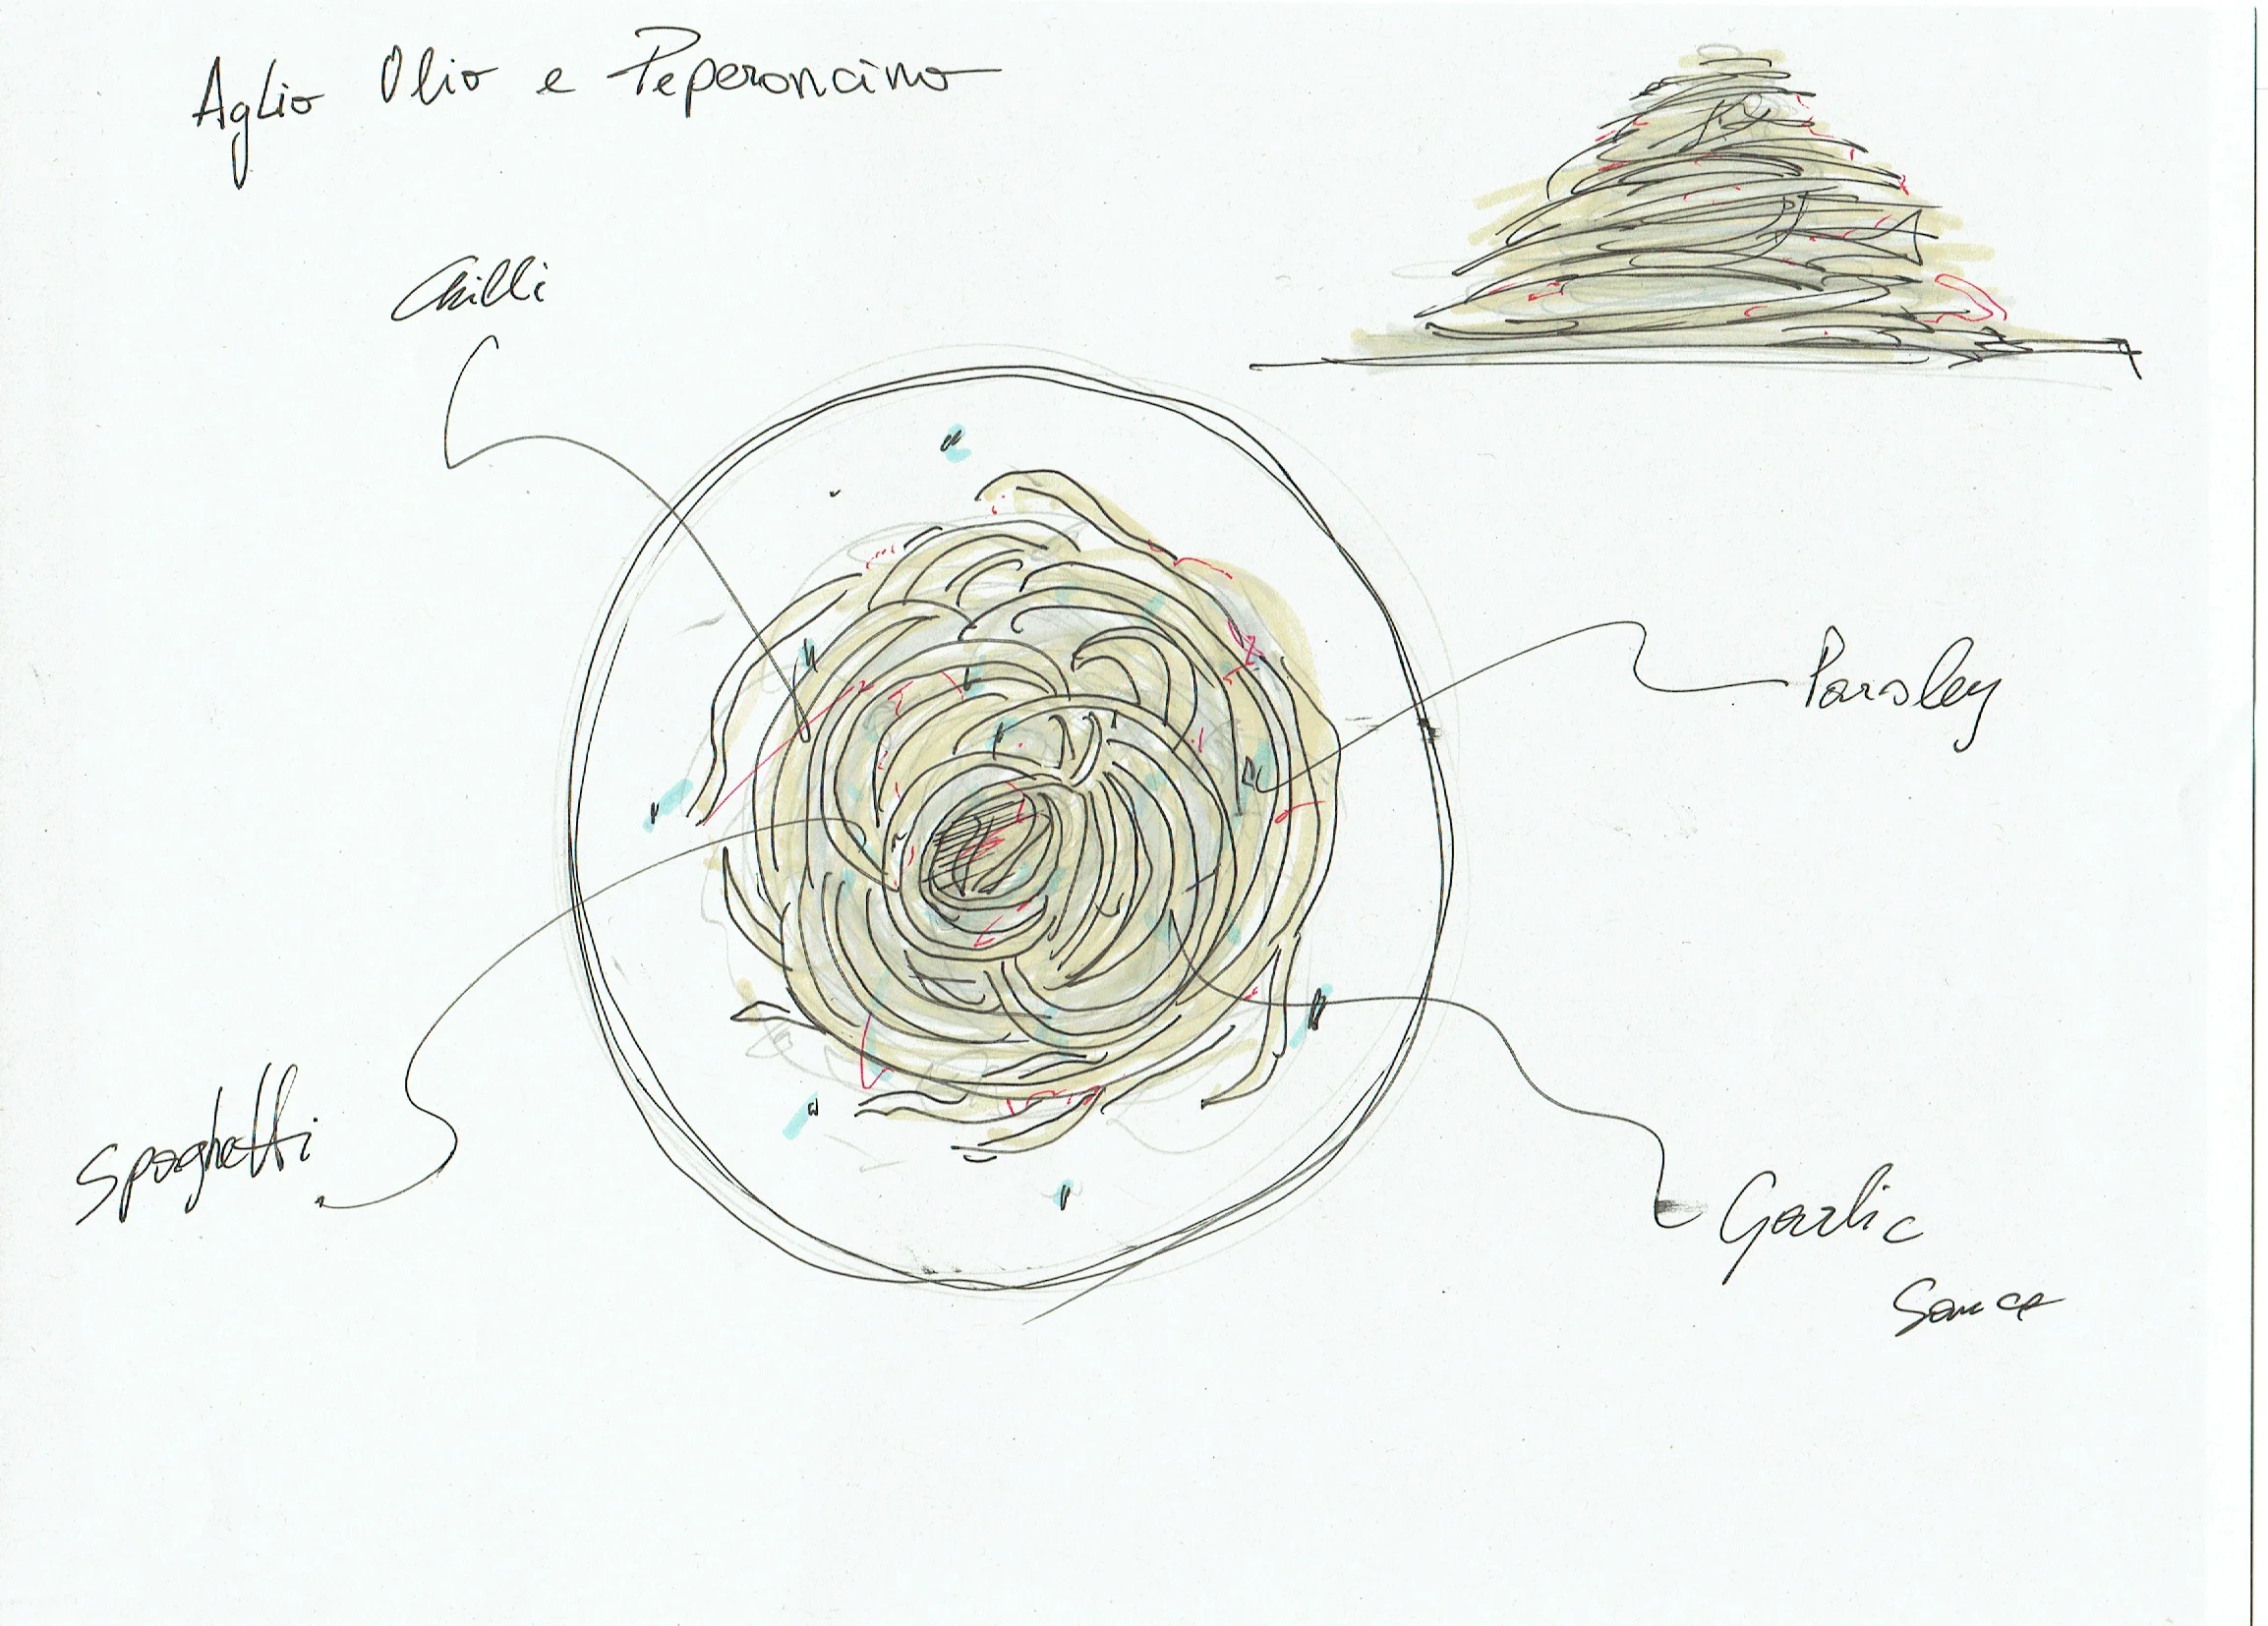 Aglio Olio e Peperoncino
Chilli
Parsley
Spaghetti
Garlic
Sauce